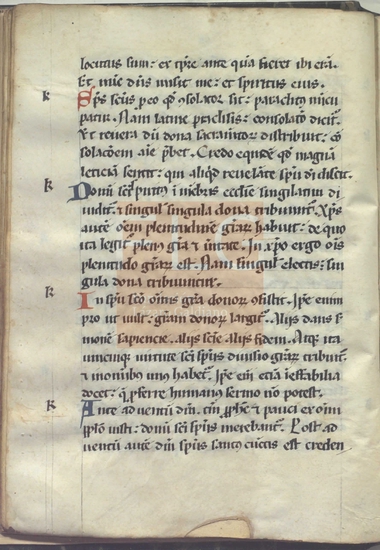 locutus sum: ex tp̄re ante q̇a fieret ibi erā.
Et nūc dn̄s misit me: et spiritus eius.
k Sp̄s sc̄us p̄eo qđ ꝯsolator sit: paraclitꝰ nūcu
patur. Nam latine paraclisis: consolatō dicit̄.
Et revera dū dona sacramētor̄ distribuit: cō
solacōem aīe p̄bet. Credo equidē qđ magnā
leticiā sentit: qui aliqd revelāte sp̄u di discit.
k Donū sc̄i spūs ī mēbris ecclīe singilatim di
viditꝰ: ⁊ singul singula dona tribuūnt̄. Xp̄s
autē oēm plenitudinē gr̄ar̄ habuit: de quo
ita legit̄ plenꝰ grīa ⁊ ūitate. In xp̄o ergo oīs
plenitudo gr̄ar̄ est. Nam singul electis: sin
gula dona tribuuntur.
k In sp̄u sc̄o oīnis gr̄a donor̄ ꝯsistit. Ip̄e enim
pro ut vult: gr̄am donor̄ largit̄. Alijs dans s̄
monē sapiencie. alijs scīe. alijs fidem. Atqꝫ ita
unicuiqꝫ virtute sc̄i sp̄us divisio gr̄ar̄ tribuit̄.
⁊ in oīnibꝰ unꝰ habet̄. Ip̄e eīn ecīā ineffabilia
docet: q̄ p̄ferre humanus sermo nō potest.
k Ante adventū dn̄i. tm̄ ꝓph̄e ⁊ pauci ex oīni
pp̄lo iusti: donū sc̄i sp̄us merebant̄. Post ad
ventū autē dn̄i sp̄us sanctꝰ cūctis est creden